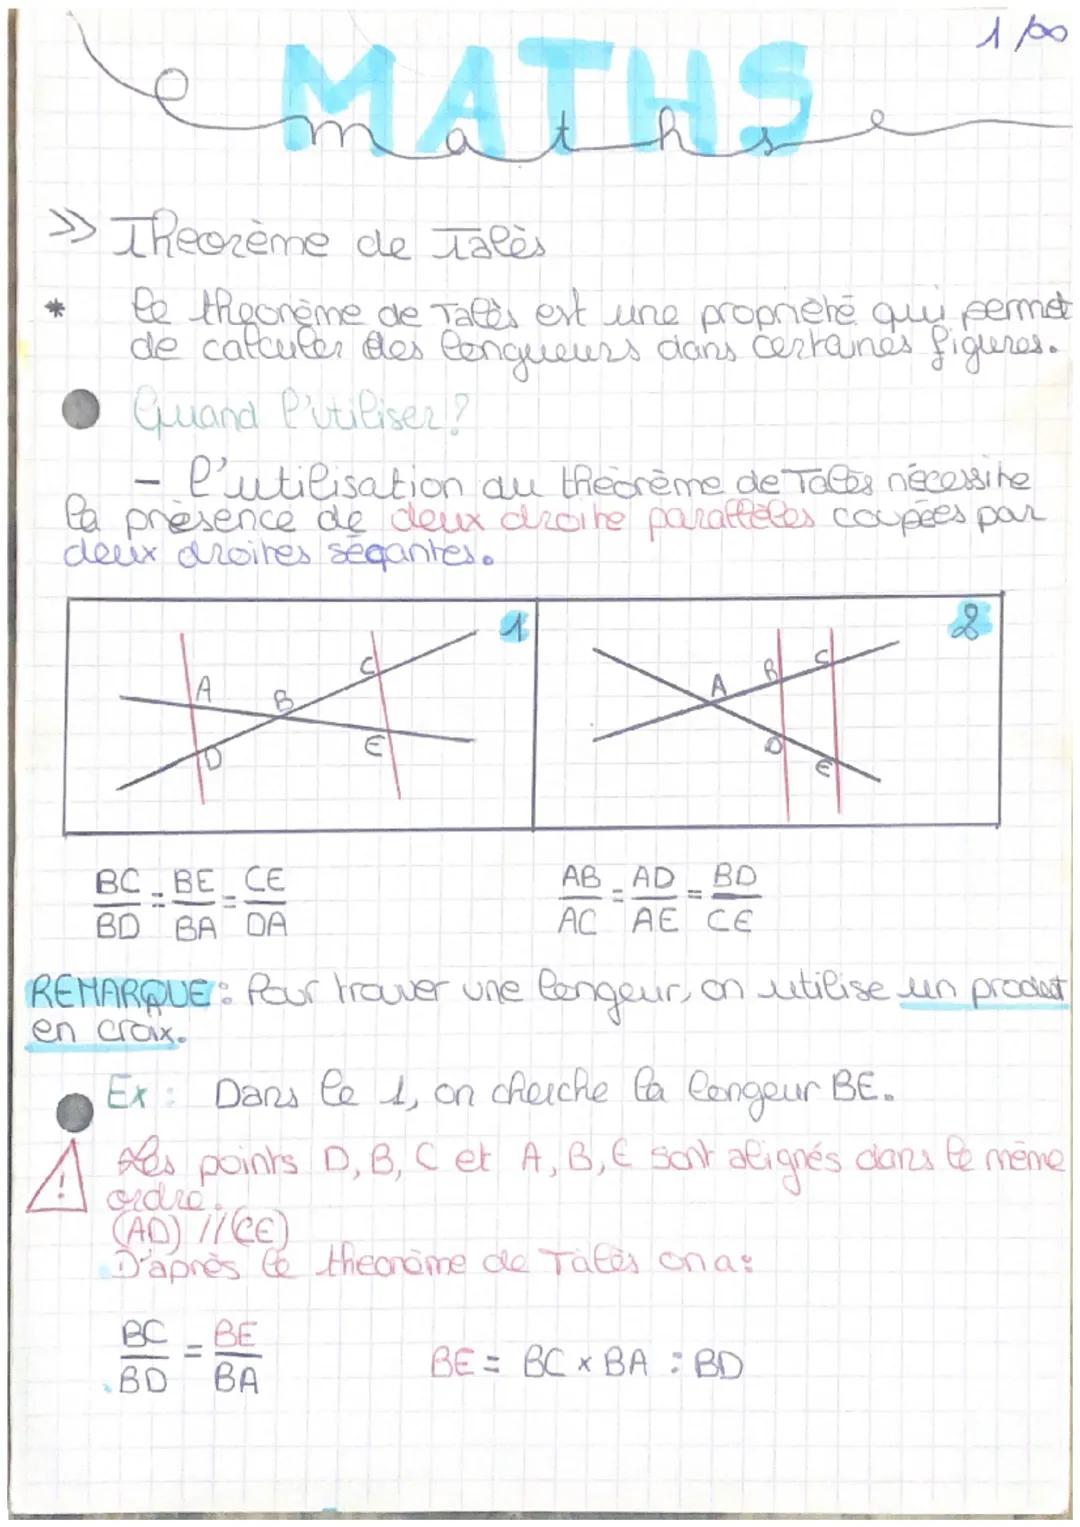 1/∞
MATHS
maths
>> Theorème de Talès
* le theorème de Talès est une propriété qui permet
de calculer des longueurs dans certaines figures.
Quand l'utiliser ?
- l'utilisation du théorème de Talès nécessite
la présence de deux droite parallèles coupées par
deux droites séqantes.
1
A
B
C
D
E
2
A
B
C
D
E
BC/BD = BE/BA = CE/DA
AB/AC = AD/AE = BD/CE
REMARQUE : Pour trouver une longeur, on utilise un produit
en croix.
Ex : Dans le 1, on cherche la longeur BE.
! Les points D, B, C et A, B, E sont alignés dans le même
ordre.
(AD) // (CE)
D'après le theorème de Talès on a :
BC/BD = BE/BA
BE = BC x BA : BD